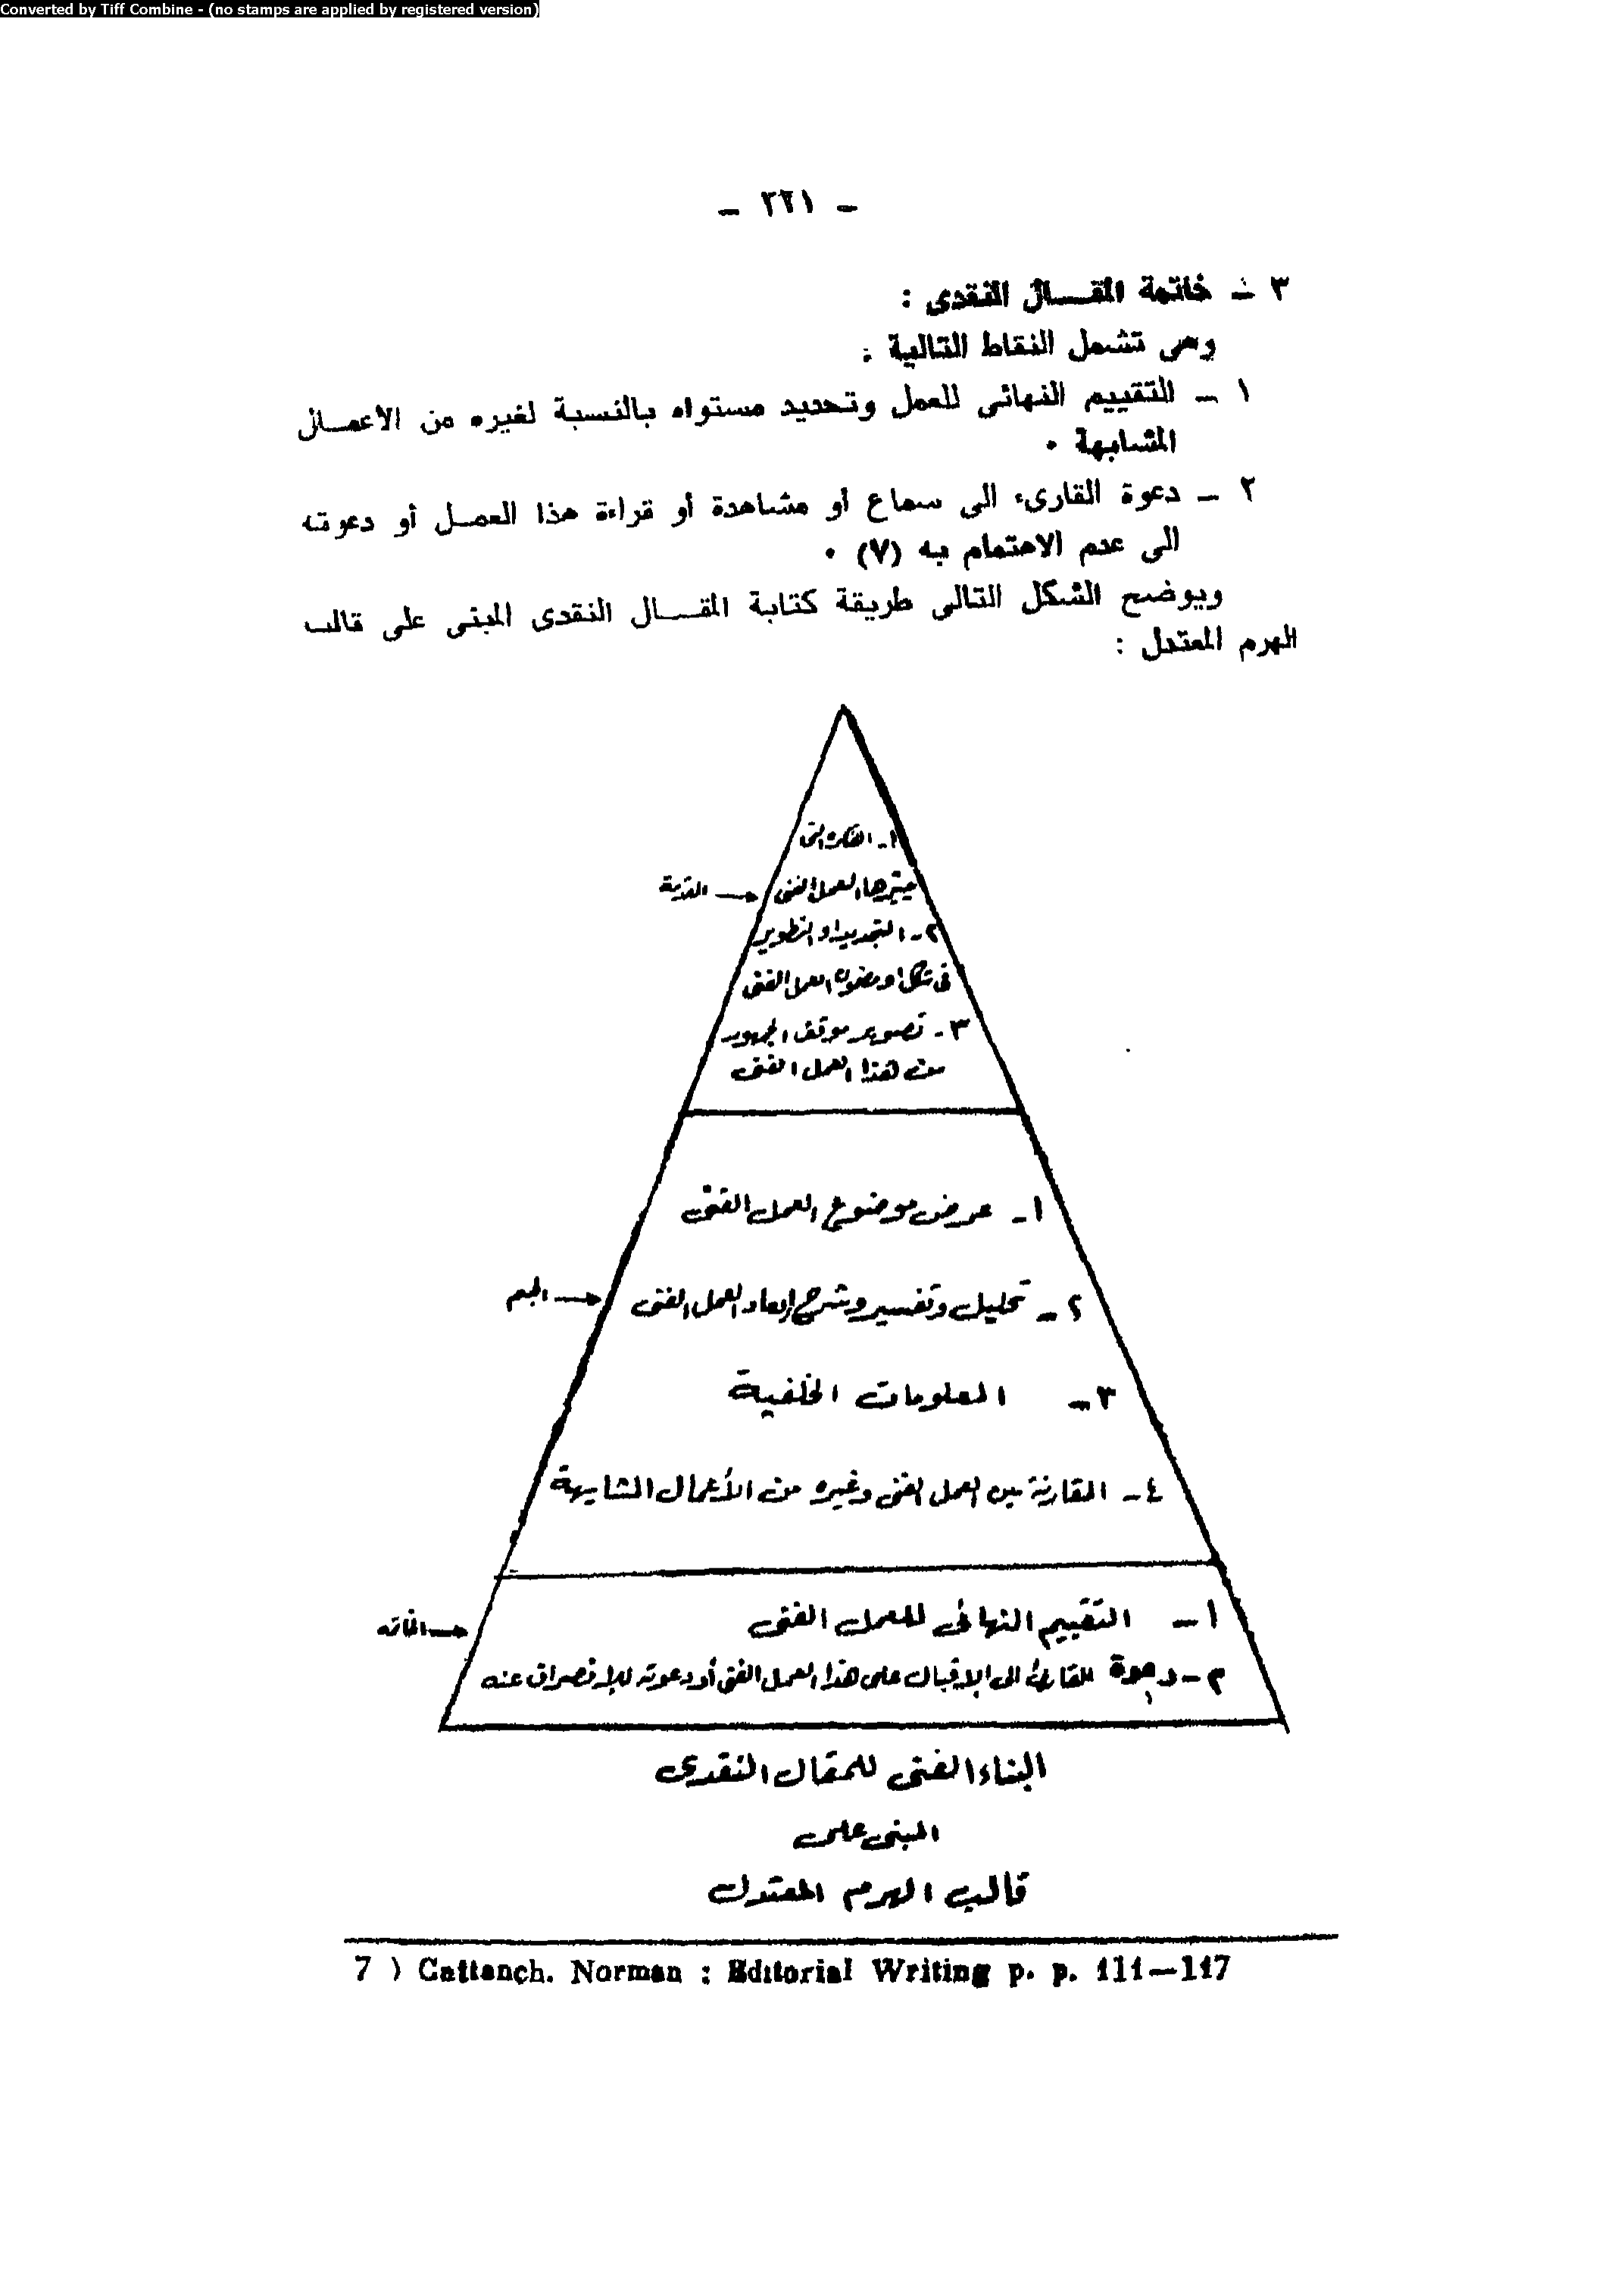 Converted by Tiff Combine - (no stamps are applied by registered version)
- ٢٢١ -
٣ - خاتمة المقـــال النقدى :
وهى تشمل النقاط التالية :
١ - التقييم النهائى للعمل وتحديد مستواه بالنسبة لغيره من الأعمـال
المشابهة .
٢ - دعوة القارىء الى سماع أو مشاهدة أو قراءة هذا العمـل أو دعوته
الى عدم الاهتمام به (٧) .
ويوضح الشكل التالى طريقة كتابة المقـــال النقدى المبنى على قالب
الهرم المعتدل :
١- الفكرة التى
يثيرها العمل الفنى
المقدمة
٢- التجديد او التطوير
فى شكل او مضمون العمل الفنى
٣- تصوير موقف الجمهور
من هذا العمل الفنى
١- عرض موضوع العمل الفنى
٢- تحليل وتفسير وشرح ابعاد العمل الفنى
الجسم
٣- المعلومات الخلفية
٤- المقارنة بين العمل الفنى وغيره من الأعمال المشابهة
١- التقييم النهائى للعمل الفنى
الخاتمه
٢- دعوة القارئ الى الإقبال على هذا العمل الفنى أو دعوته للإنصراف عنه
البناء الفنى للمقال النقدى
المبنى على
قالب الهرم المعتدل
7 ) Cattanch. Norman : Editorial Writing p. p. 111—117